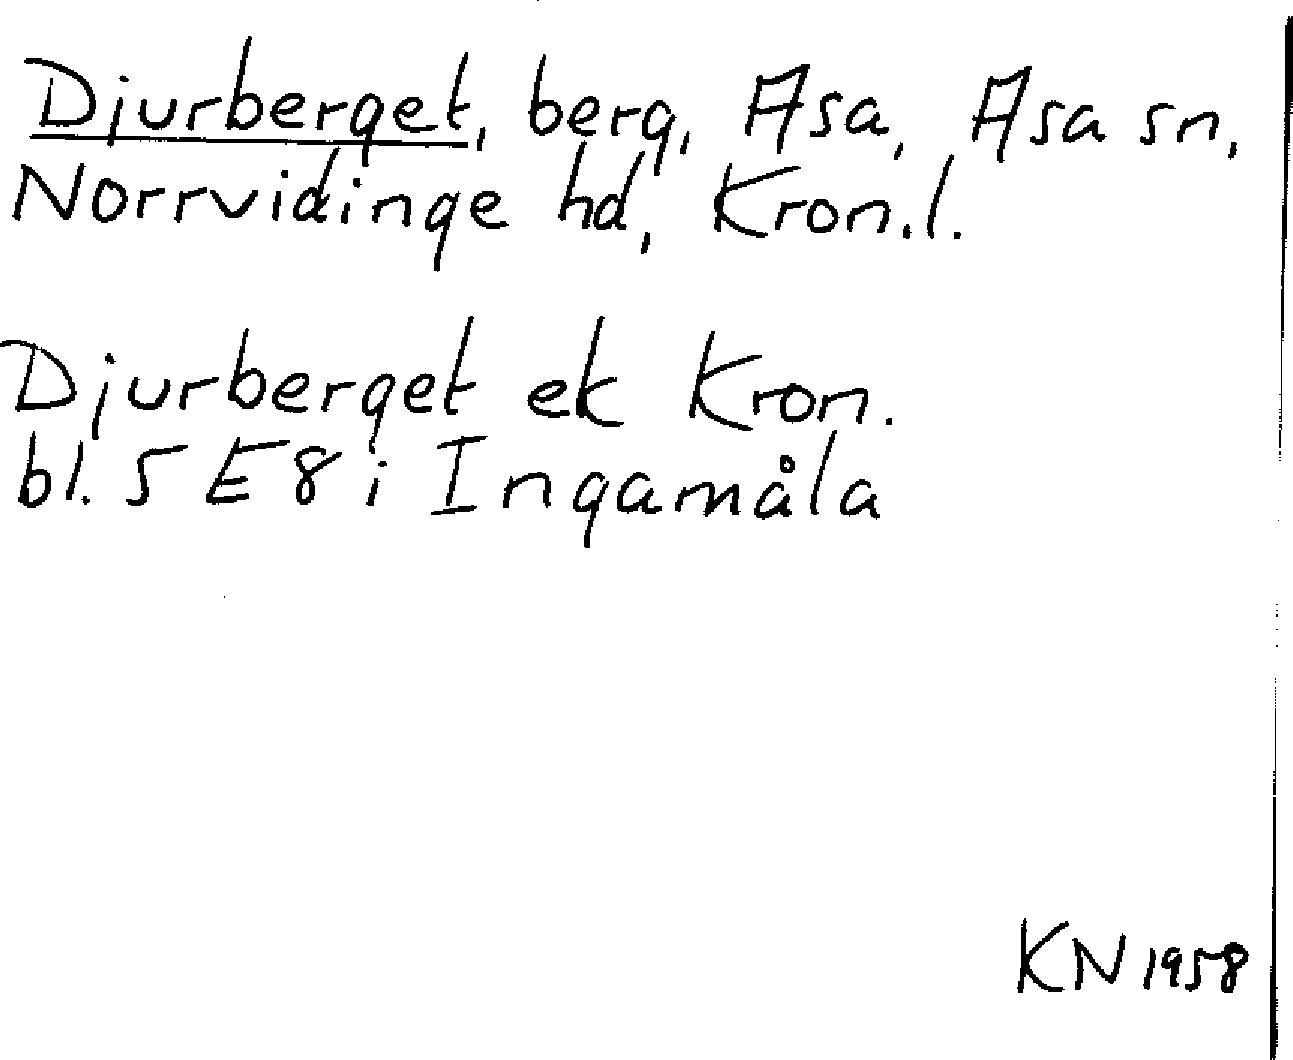 Djurberget, berg, Asa, Asa sn,
Norrvidinge hd, Kron.l.
Djurberget ek Kron.
bl. 5 E8 i Ingamåla
KN 1958